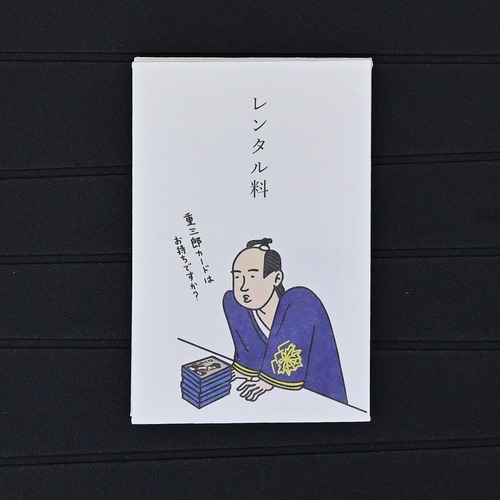 レンタル料
重三郎カードは
お持ちですか?